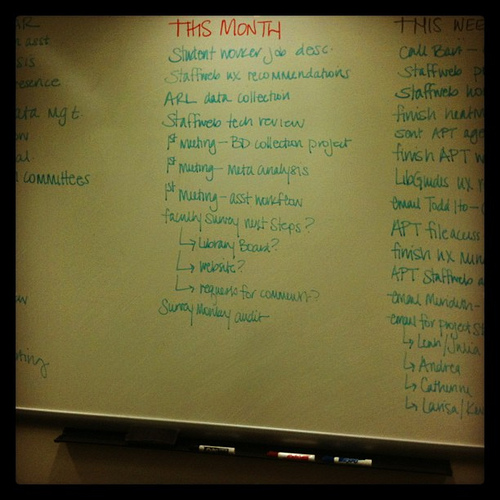 THIS MONTH
Student worker job desc.
Staffweb UX recommendations
ARL data collection
Staffweb tech review
1st meeting - BD collection project
1st meeting - meta analysis
1st meeting - asst workflow
faculty survey next steps?
↳ Library Board?
↳ website?
↳ requests for comment?
Survey Monkey audit
asst
committees
THIS WEE
Call Bart -
Staffweb p
Staffweb
finish
sent APT age
finish APT
LibGuides UX
email Todd Ito -
APT file access
finish UX
APT Staffweb a
email
email for project
↳ Leah/Julia
↳ Andrea
↳ Catherine
↳ Larisa/